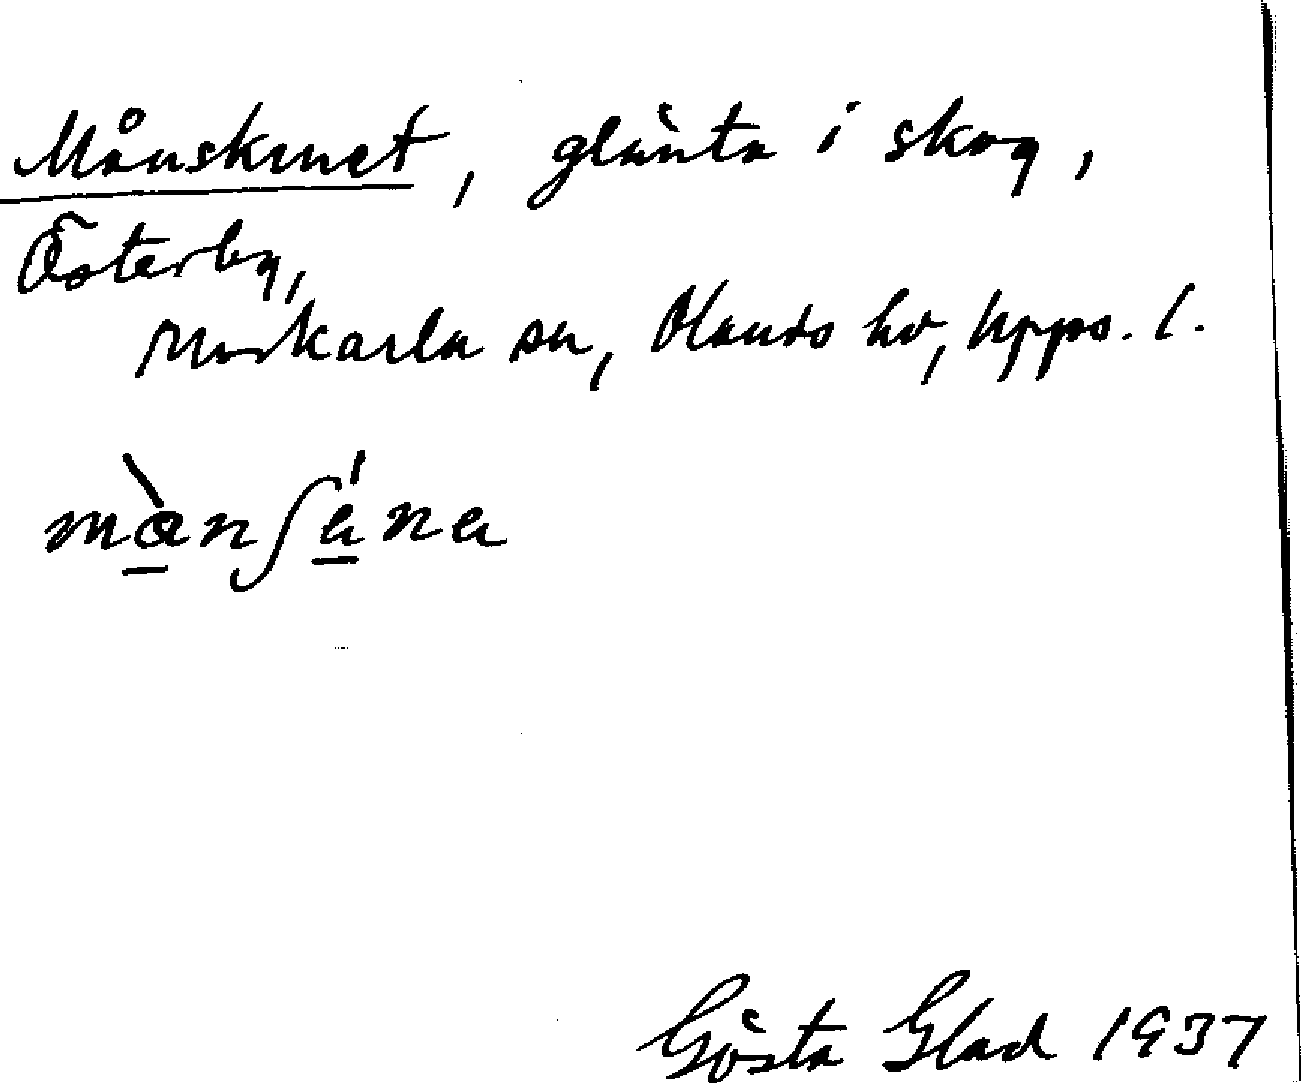 Månskenet, glänta i skog,
Österby,
Morkarla sn, Olands hd, Upps. l.
Gösta Glad 1937